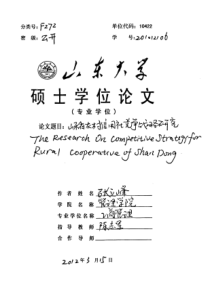 分类号: F272 单位代码: 10422
密 级: 公开 学 号:
山东大学
硕士学位论文
(专业学位)
论文题目:
The Research On Competitive Strategy for
Rural Cooperative of Shan Dong
作 者 姓 名
学 院 名 称 管理学院
专 业 学 位 名 称 工商管理
指 导 教 师
合 作 导 师
2012年3月15日